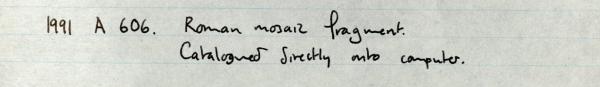 1991 A 606. Roman mosaic fragment.
Catalogued directly onto computer.